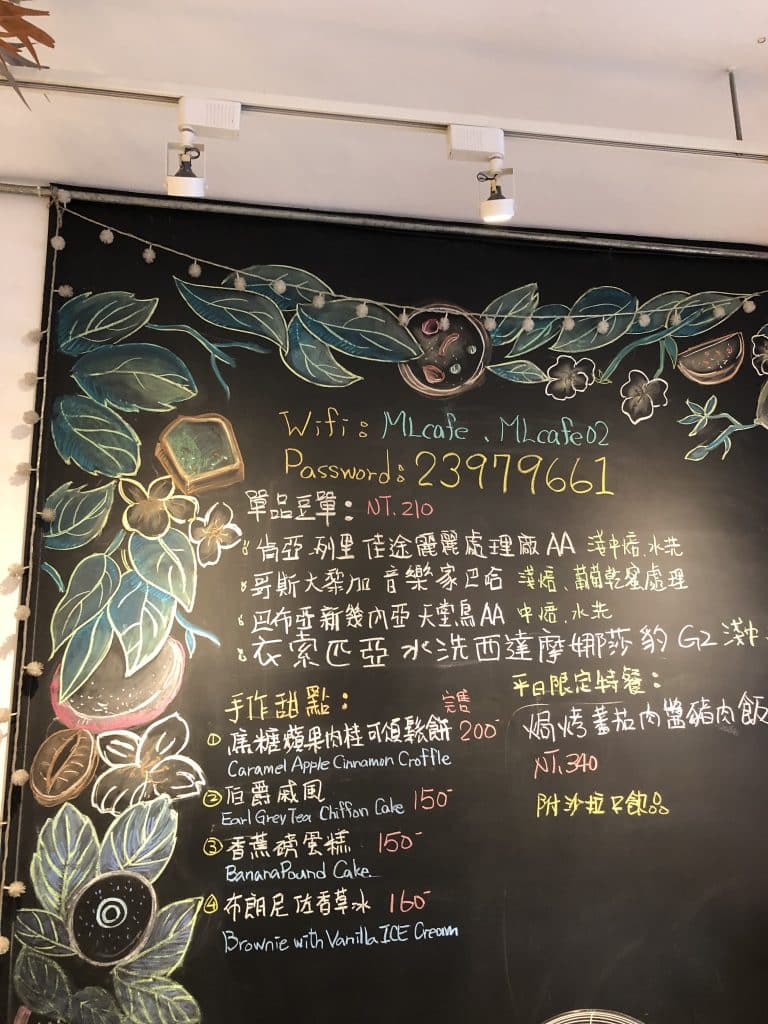 Wifi: MLcafe、MLcafe02
Password: 23979661
單品豆單: NT.210
肯亞.列里 佳途麗麗處理廠 AA 淺中焙.水洗
哥斯大黎加 音樂家 巴哈 淺焙、葡萄乾蜜處理
巴布亞新幾內亞 天堂鳥AA 中焙.水洗
衣索匹亞 水洗西達摩娜莎豹 G2 淺中
手作甜點: 完售
① 焦糖蘋果肉桂可頌鬆餅 200-
Caramel Apple Cinnamon Croffle
② 伯爵戚風 150-
Earl Grey Tea Chiffon Cake
③ 香蕉磅蛋糕 150-
Banana Pound Cake
④ 布朗尼佐香草冰 160-
Brownie with Vanilla ICE Cream
平日限定特餐:
焗烤蕃茄肉醬豬肉飯
NT.340
附沙拉&飲品